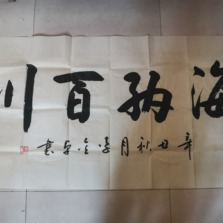 海纳百川
辛丑秋月